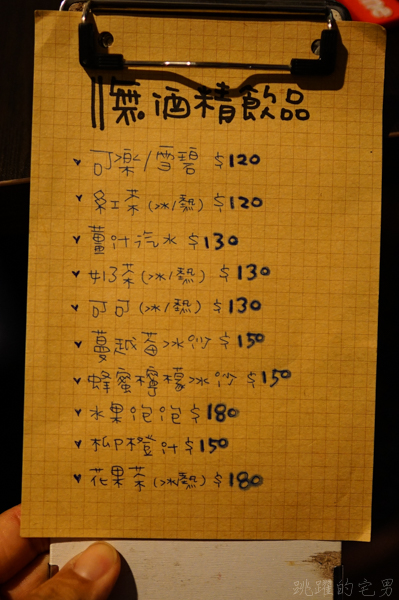 無酒精飲品
可樂/雪碧 $120
紅茶(冰/熱) $120
薑汁汽水 $130
奶茶(冰/熱) $130
可可(冰/熱) $130
蔓越莓冰沙 $150
蜂蜜檸檬冰沙 $150
水果泡泡 $180
柳橙汁 $150
花果茶(冰/熱) $180
跳躍的宅男